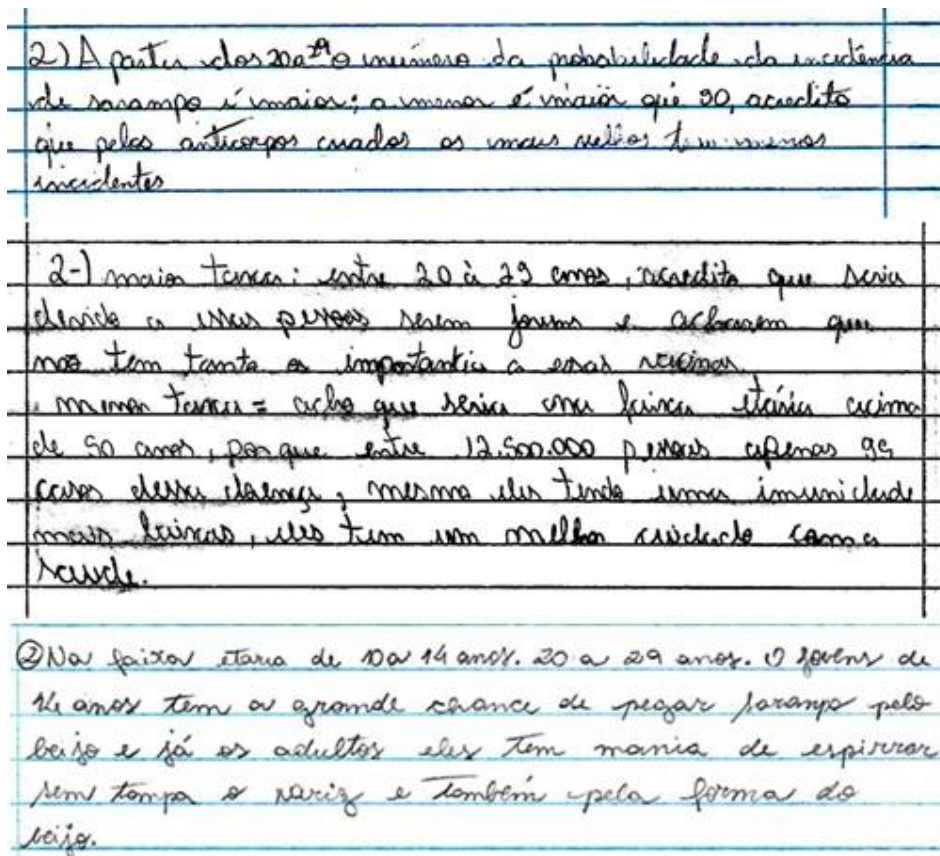 2) A partir dos 20 a 29 o número da probabilidade da incidência
de sarampo é maior; a menor é maior que 50, acredito
que pelos anticorpos criados os mais velhos tem menos
incidentes
2-) maior taxa: entre 20 à 29 anos, acredito que seria
devido a essas pessoas serem jovens e acharem que
não tem tanta a importantia a essas vacinas
. menor taxa = acho que seria ana faixa etária acima
de 50 anos, porque entre 12.500.000 pessoas apenas 99
casos dessa doença, mesmo eles tendo uma imunidade
mais baixas, eles tem um melhor cuidado com a
saude.
② Na faixa etaria de 10 a 14 anos. 20 a 29 anos. O jovens de
14 anos tem a grande chance de pegar saranpo pelo
beijo e já os adultos eles tem mania de espirrar
sem tampa o nariz e também pela forma do
beijo.